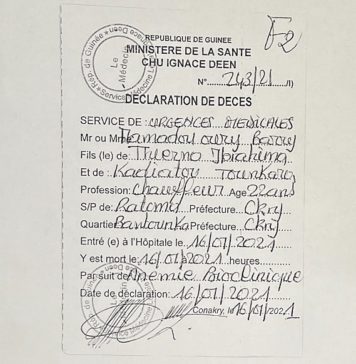 F2
REPUBLIQUE DE GUINEE
MINISTERE DE LA SANTE
CHU IGNACE DEEN
N° 243/21
DECLARATION DE DECES
SERVICE DE: URGENCES MEDICALES
Mr ou Mme Mamadou oury Barry
Fils (le) de: Thierno Ibrahima
Et de: Kadiatou Tounkara
Profession: Chauffeur Age 22 ans
S/P de: Ratoma Préfecture Ckry
Quartier Bantounka Préfecture Ckry
Entré (e) à l'Hôpitale le 16/01/2021
Y est mort le 16/01/2021 heures
Par suit de Anémie Bioclinique
Date de déclaration: 16/01/2021
Conakry, le 16/01/2021
Rep. de Guinée
Le
Médecin